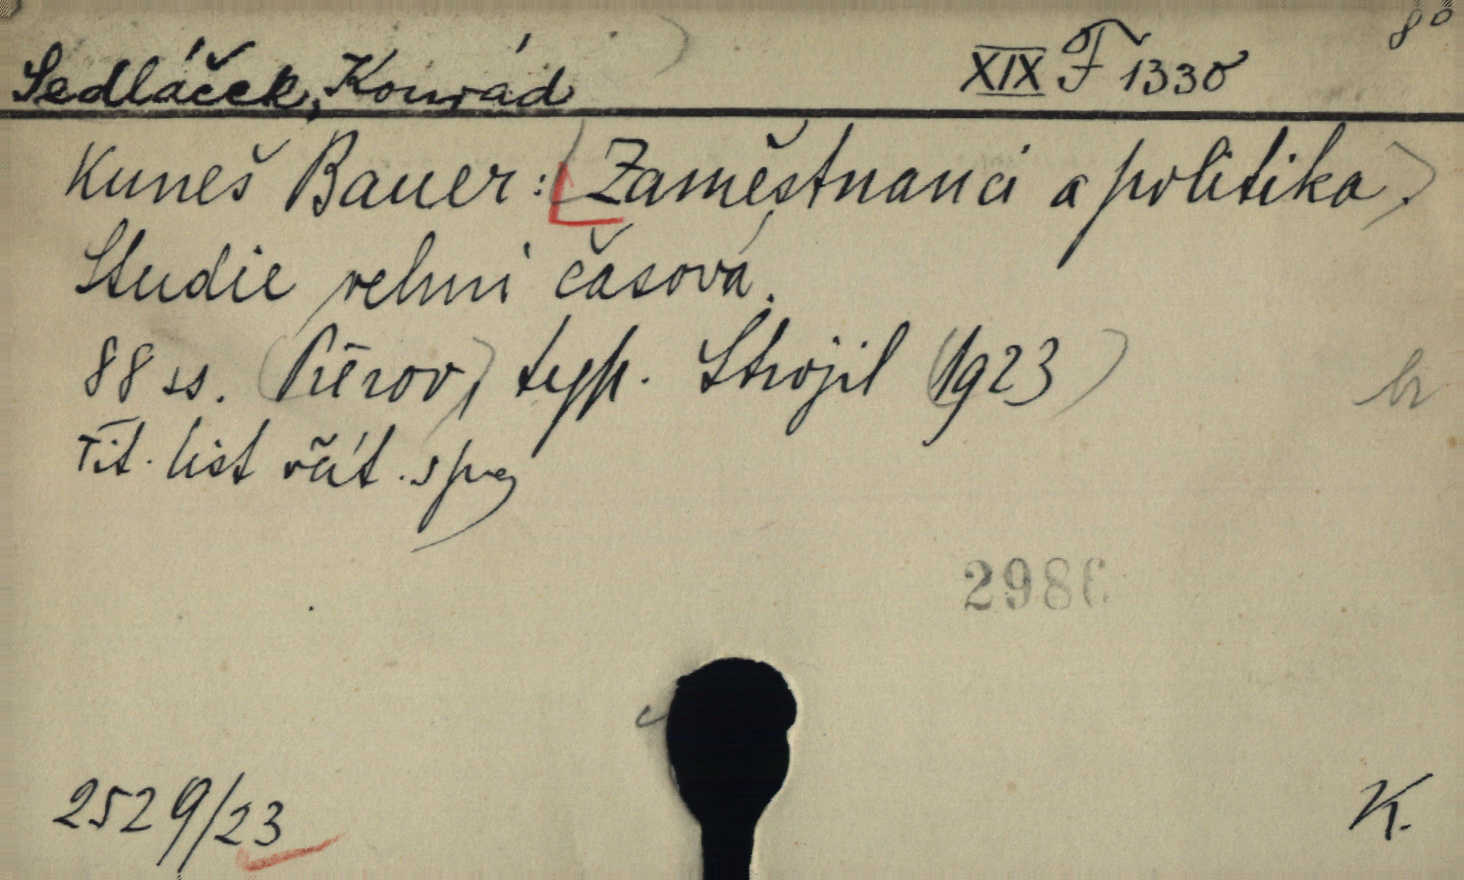 8°
Sedláček, Konrád XIX F 1330
Kuneš Bauer: (Zaměstnanci a politika).
Studie velmi časová.
88 ss. (Přerov,) typ. Strojil (1923)
Tit. list
2986
2529/23 K.